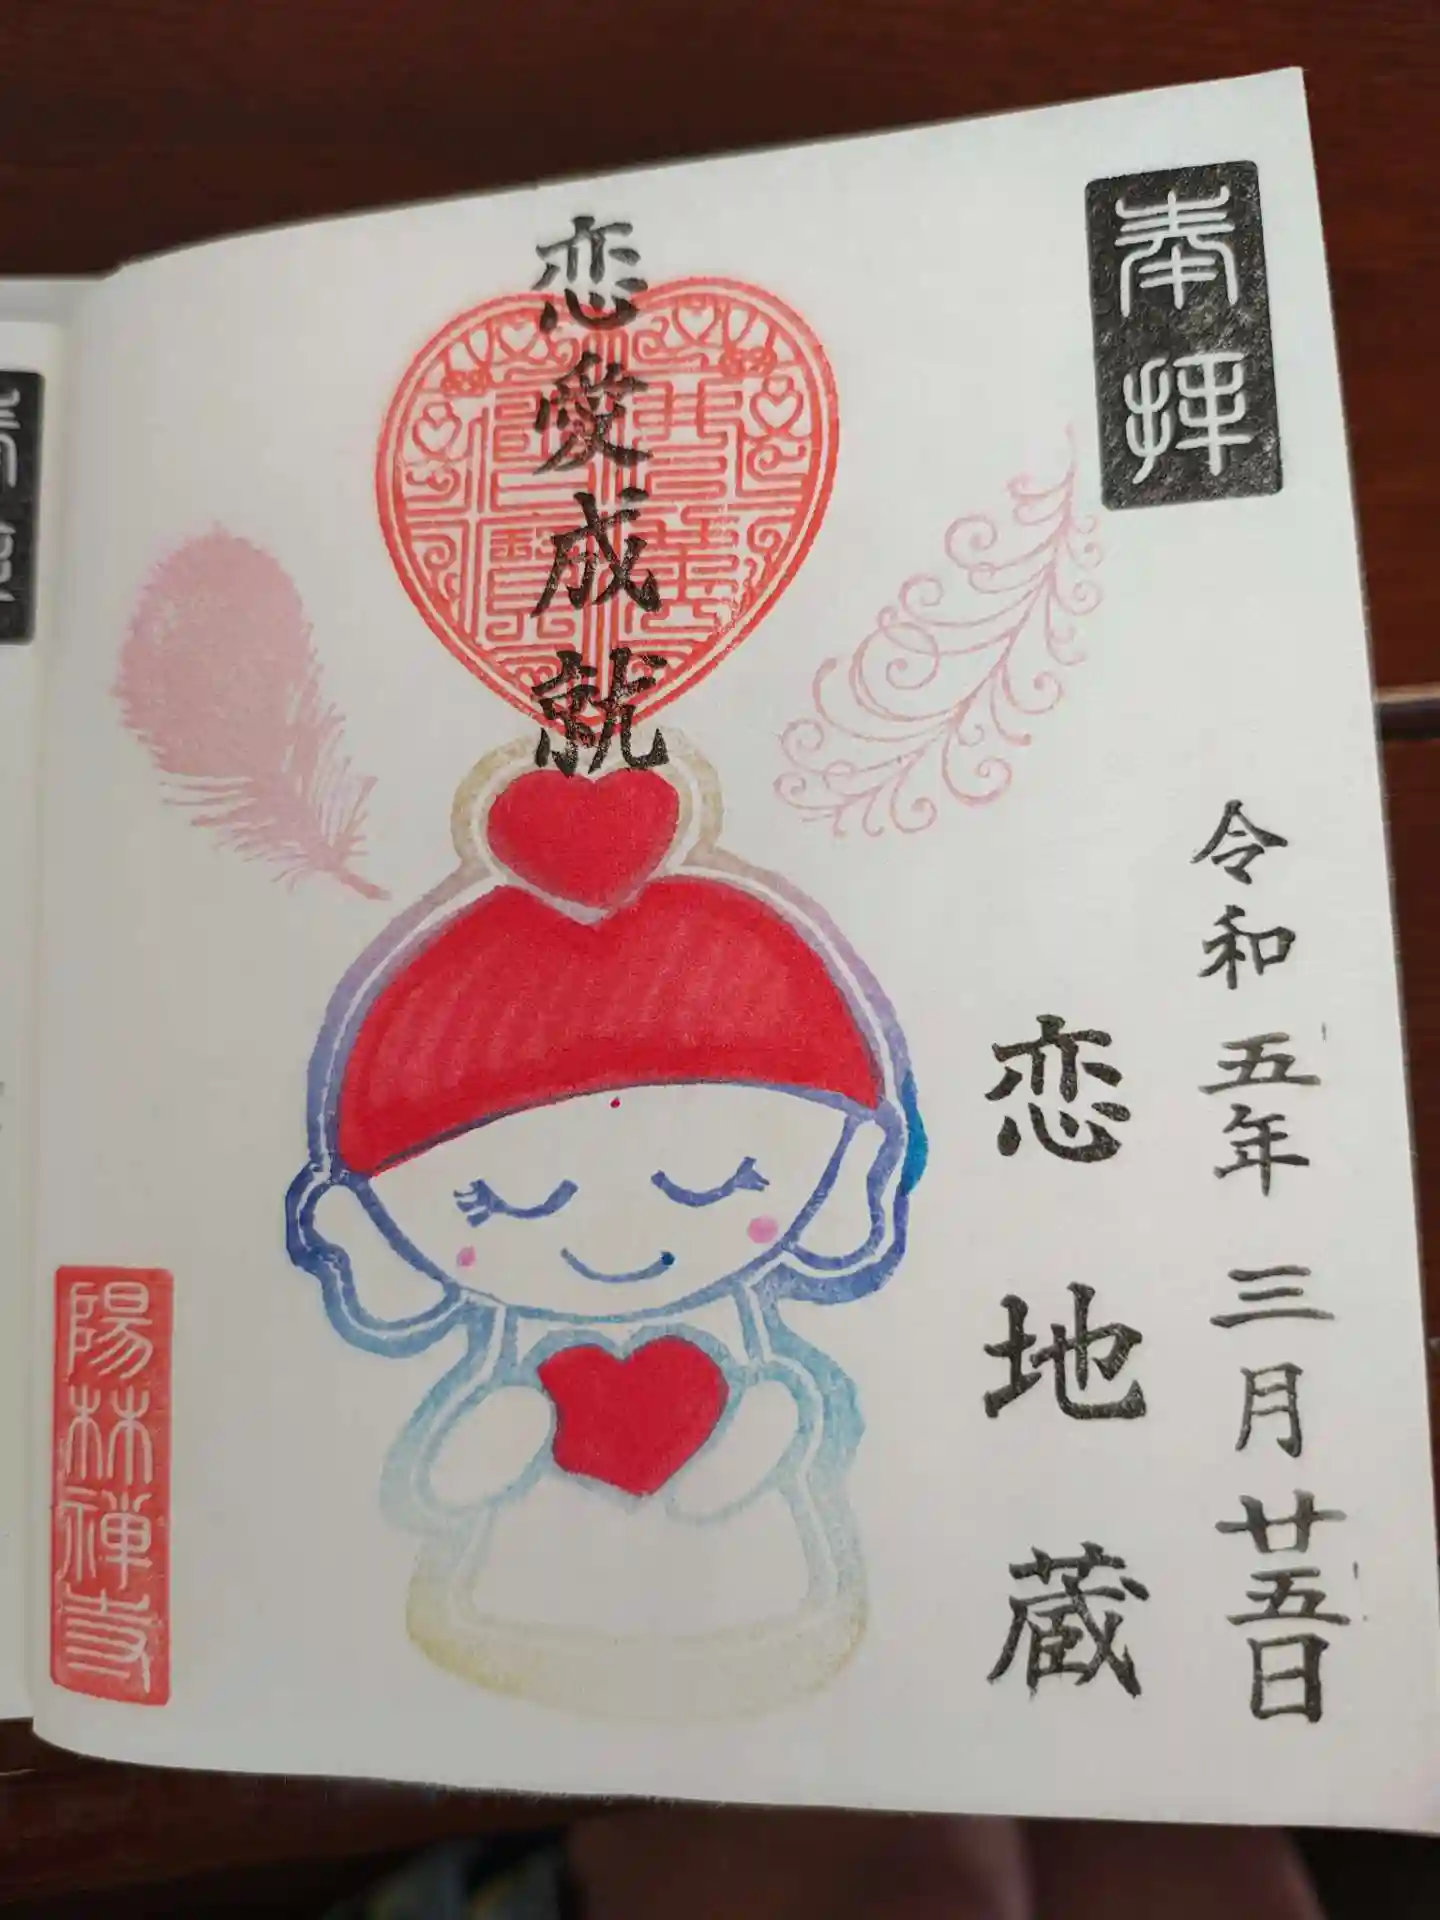 奉拝
令和五年三月廿五日
恋地蔵
恋愛成就
陽林禅寺